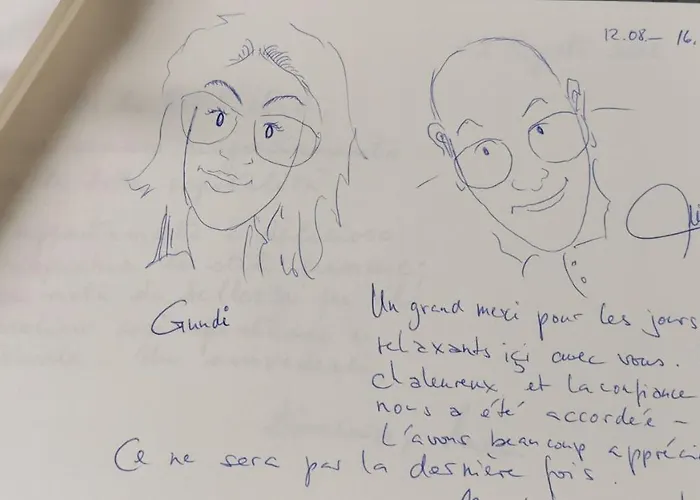 12.08.– 16.
Gundi
Un grand merci pour les jours
relaxants içi avec vous.
chaleureux et la confiance
nous a été accordée –
L'avons beaucoup appréci
Ce ne sera pas la dernière fois.